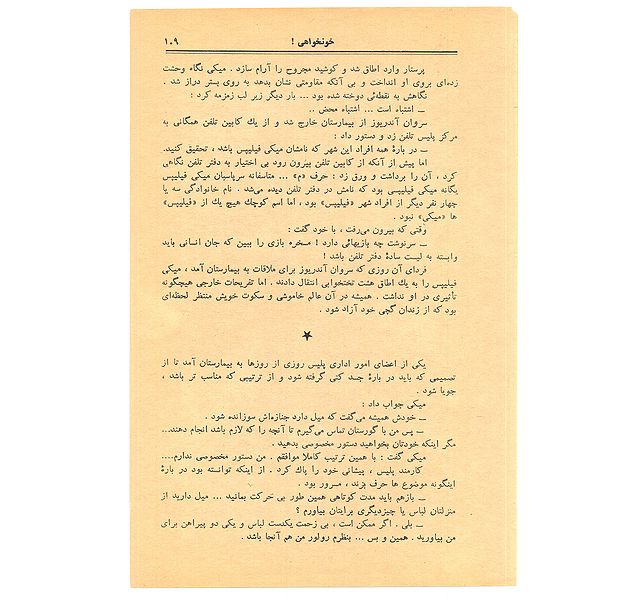 خونخواهی !
۱۰۹
پرستار وارد اطاق شد و کوشید مجروح را آرام سازد . میکی نگاه وحشت
زده‌ای بروی او انداخت و بی آنکه مقاومتی نشان بدهد به روی بستر دراز شد .
نگاهش به نقطه‌ئی دوخته شده بود ... بار دیگر زیر لب زمزمه کرد :
ــ اشتباه است ... اشتباه محض ..
سروان آندریوز از بیمارستان خارج شد و از یك کابین تلفن همگانی به
مرکز پلیس تلفن زد و دستور داد :
ــ در بارهٔ همه افراد این شهر که نامشان میکی فیلیپس باشد ، تحقیق کنید.
اما پیش از آنکه از کابین تلفن بیرون رود بی اختیار به دفتر تلفن نگاهی
کرد ، آن را برداشت و ورق زد : حرف «م» ... متاسفانه سرپاسبان میکی فیلیپس
یگانه میکی فیلیپسی بود که نامش در دفتر تلفن دیده می‌شد . نام خانوادگی سه یا
چهار نفر دیگر از افراد شهر «فیلیپس» بود ، اما اسم کوچك هیچ یك از «فیلیپس»
ها «میکی» نبود .
وقتی که بیرون می‌رفت ، با خود گفت :
ــ سرنوشت چه بازیهائی دارد ! مسخره بازی را ببین که جان انسانی باید
وابسته به لیست سادهٔ دفتر تلفن باشد !
فردای آن روزی که سروان آندریوز برای ملاقات به بیمارستان آمد ، میکی
فیلیپس را به یك اطاق هشت تختخوابی انتقال دادند . اما تفریحات خارجی هیچگونه
تأثیری در او نداشت . همیشه در آن عالم خاموشی و سکوت خویش منتظر لحظه‌ای
بود که از زندان گچی خود آزاد شود .
یکی از اعضای امور اداری پلیس روزی از روزها به بیمارستان آمد تا از
تصمیمی که باید در بارهٔ جسد کتی گرفته شود و از ترتیبی که مناسب تر باشد ،
جویا شود .
میکی جواب داد :
ــ خودش همیشه می‌گفت که میل دارد جنازه‌اش سوزانده شود .
ــ پس من با گورستان تماس می‌گیرم تا آنچه را که لازم باشد انجام دهند...
مگر اینکه خودتان بخواهید دستور مخصوصی بدهید .
میکی گفت : با همین ترتیب کاملا موافقم . من دستور مخصوصی ندارم....
کارمند پلیس ، پیشانی خود را پاك کرد . از اینکه توانسته بود در بارهٔ
اینگونه موضوع ها حرف بزند ، مسرور بود .
ــ بازهم باید مدت کوتاهی همین طور بی حرکت بمانید ... میل دارید از
منزلتان لباس یا چیزدیگری برایتان بیاورم ؟
ــ بلی . اگر ممکن است ، بی زحمت یکدست لباس و یکی دو پیراهن برای
من بیاورید . همین و بس ... بنظرم رولور من هم آنجا باشد .